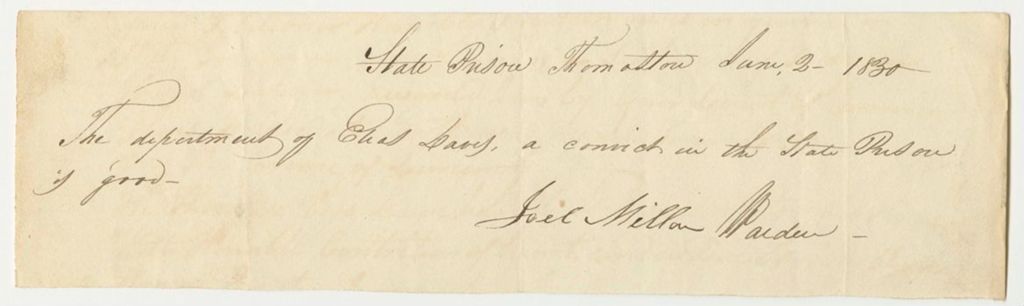 State Prison Thomaston June, 2- 1830
The depertment of Elias Daves, a convict in the State Prison
is good-
Joel Miller Warden -